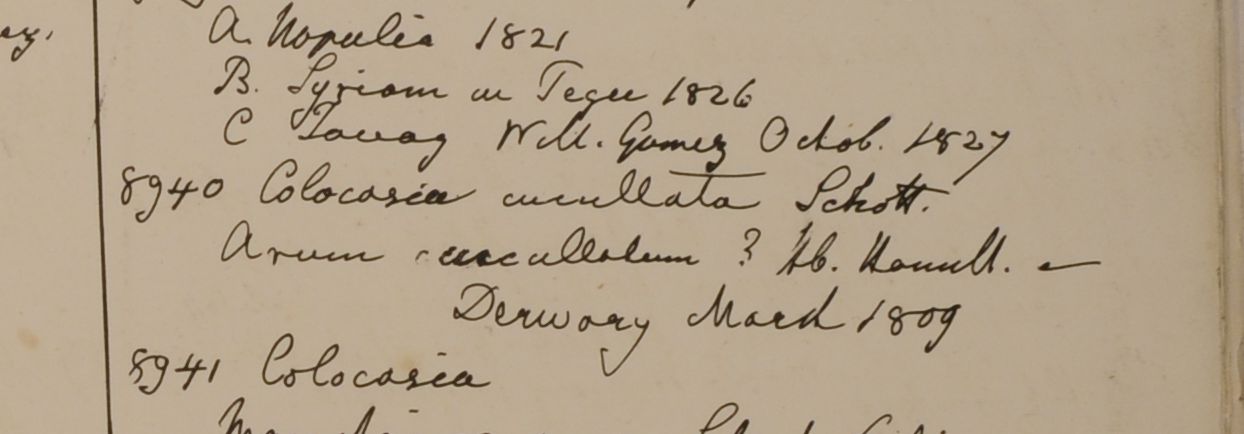 A. Napalia 1821
B. Syriam in Pegu 1826
C Tavoy W. M. Gomez Octob. 1827
8940 Colocasia cucullata Schott.
Arum cucullatum ? Hb. Hamilt. —
Derwary March 1809
8941 Colocasia